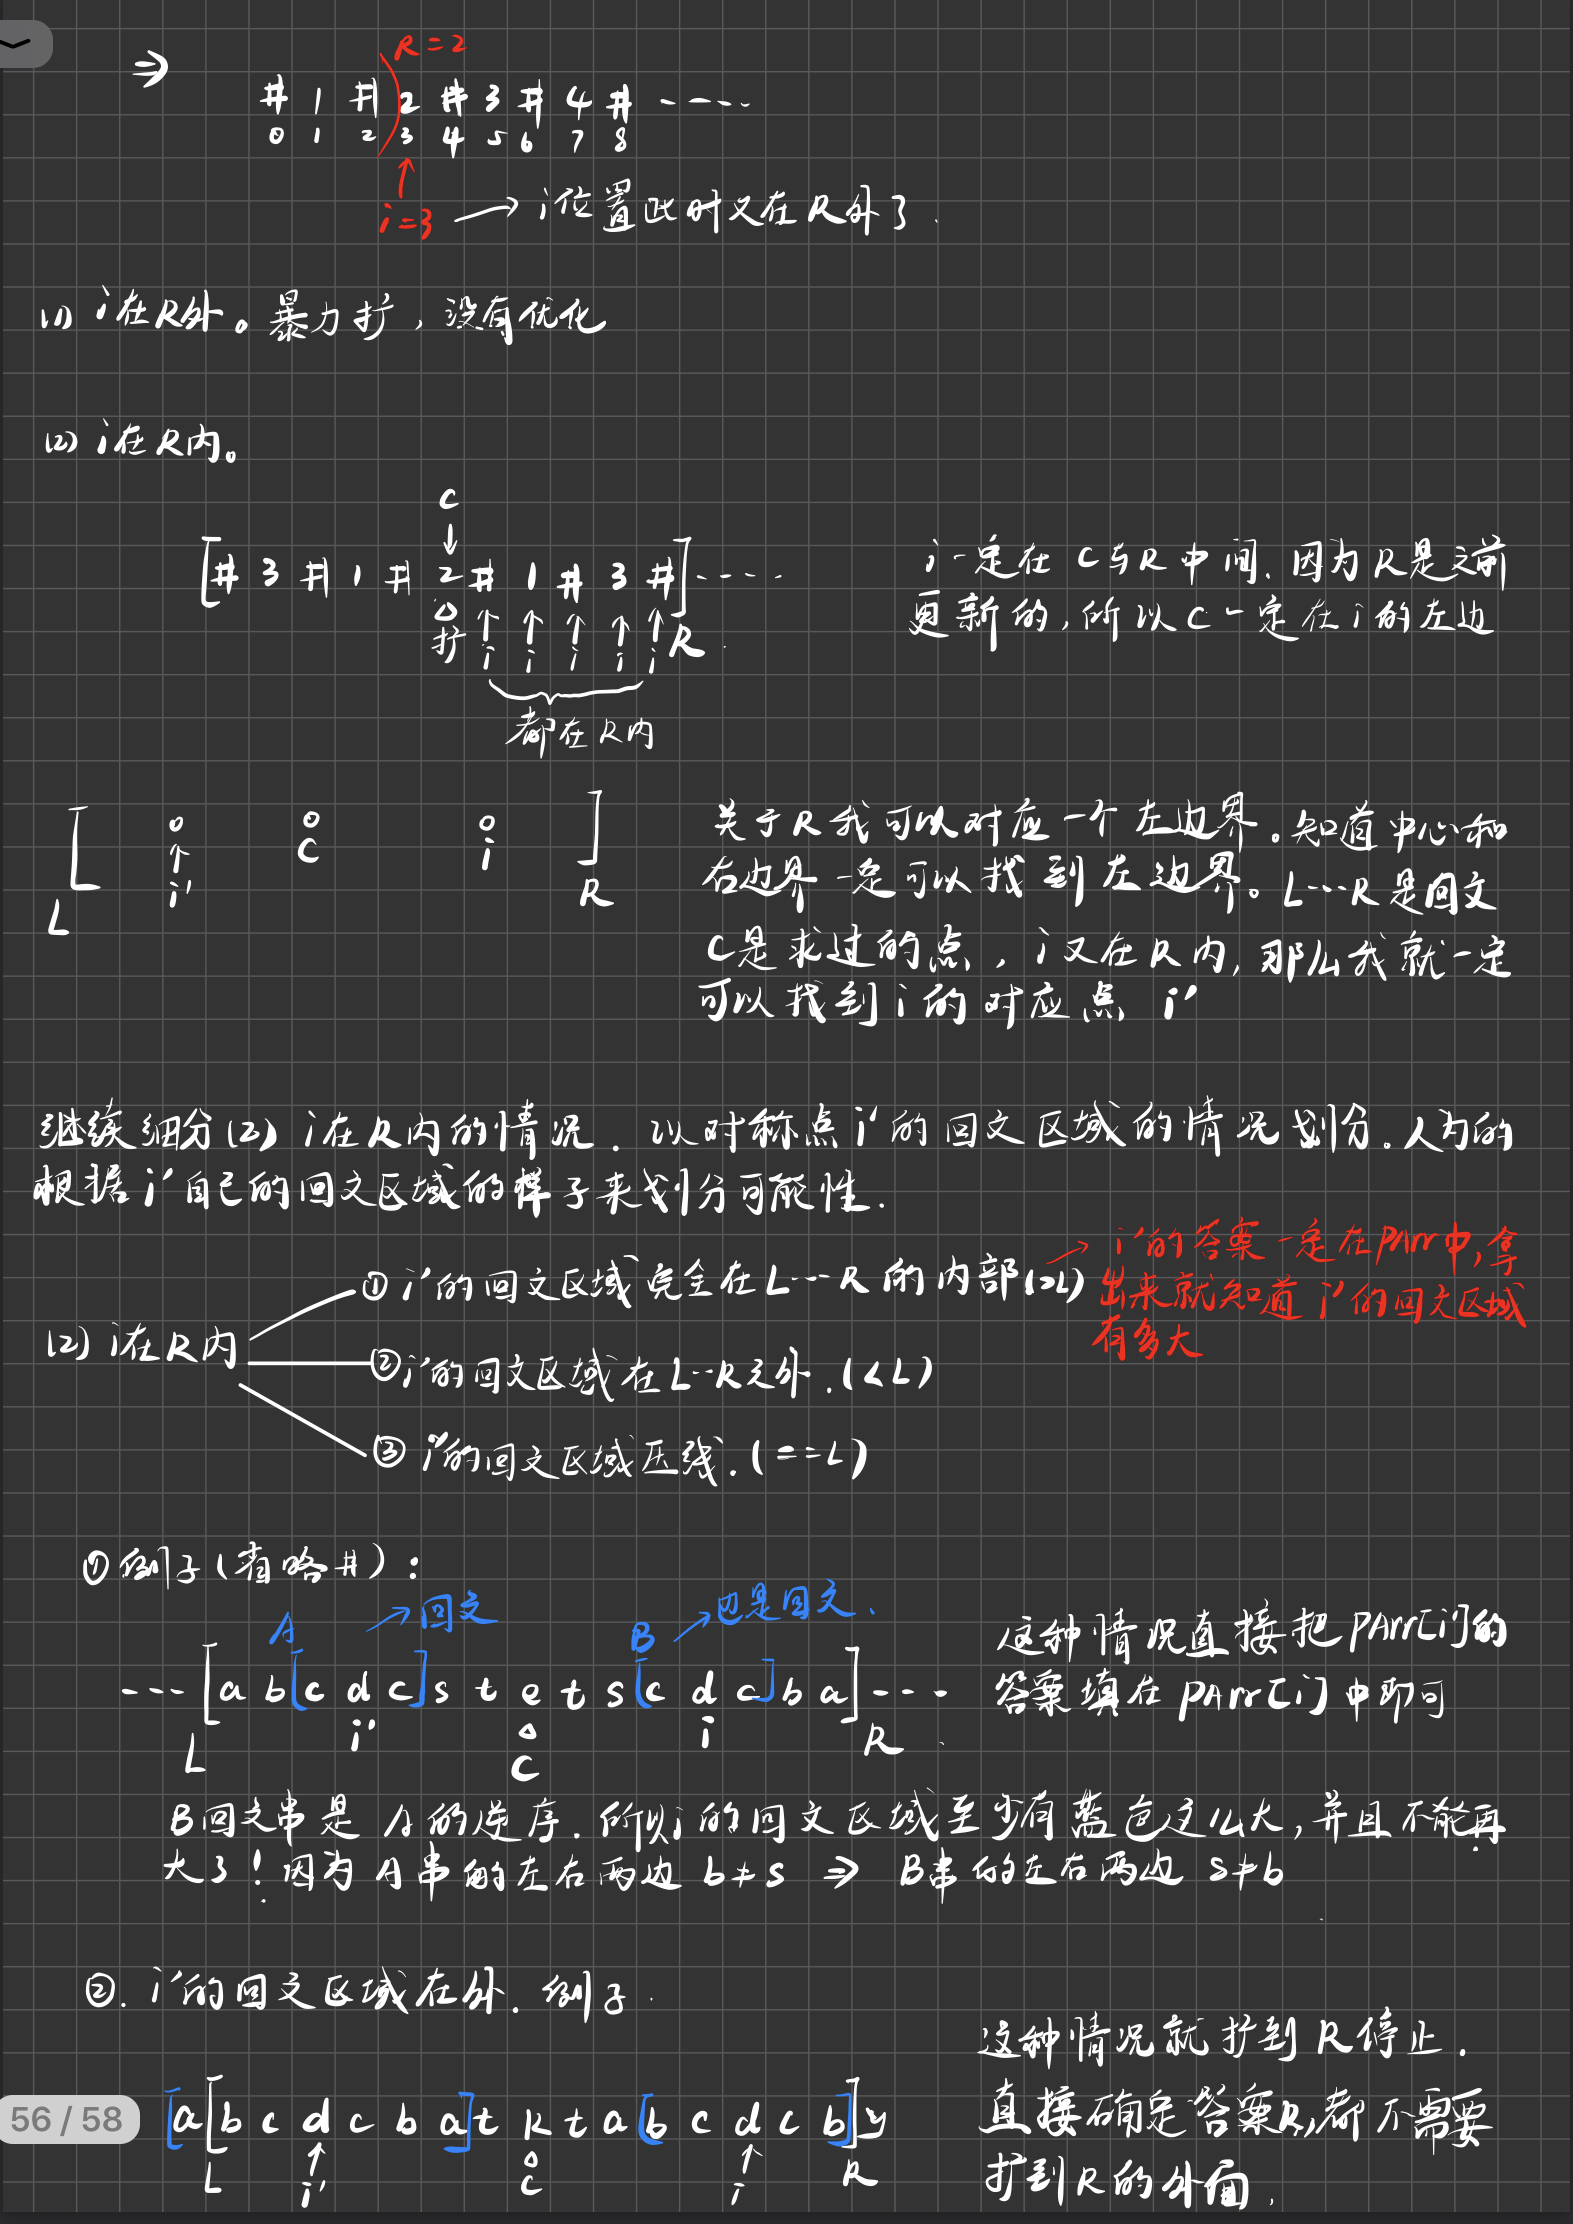 ⇒
R=2
# 1 # 2 # 3 # 4 # ----
0 1 2 3 4 5 6 7 8
i=3 → i位置此时又在R外了.
(1) i在R外。暴力扩，没有优化
(2) i在R内。
C
[# 3 # 1 # 2 # 1 # 3 #]----
扩 i i i i i R
都在R内
i一定在C与R中间.因为R是之前
更新的,所以C一定在i的左边
L i' C i R
关于R我可以对应一个左边界。知道中心和
右边界一定可以找到左边界。L…R是回文
C是求过的点，i又在R内,那么我就一定
可以找到i的对应点 i'
继续细分(2) i在R内的情况.以对称点i'的回文区域的情况划分.人为的
根据i'自己的回文区域的样子来划分可能性.
(2) i在R内
① i'的回文区域完全在L…R的内部(>L)
→ i'的答案一定在pArr中,拿
出来就知道i'的回文区域
有多大
② i'的回文区域在L··R之外.(<L)
③ i'的回文区域压线.(==L)
① 例子(省略#):
A →回文 B →也是回文.
---[a b[c d c]s t e t s[c d c]b a]---
L i' C i R
这种情况直接把pArr[i']的
答案填在pArr[i]中即可
B回文串是A的逆序.所以i的回文区域至少有蓝色这么大,并且不能再
大了!因为A串的左右两边 b≠s ⇒ B串的左右两边 s≠b
②. i'的回文区域在外.例子.
[a[b c d c b a]t k t a[b c d c b]]y
L i' C i R
这种情况就扩到R停止.
直接确定答案R,都不需要
扩到R的外面.
56 / 58